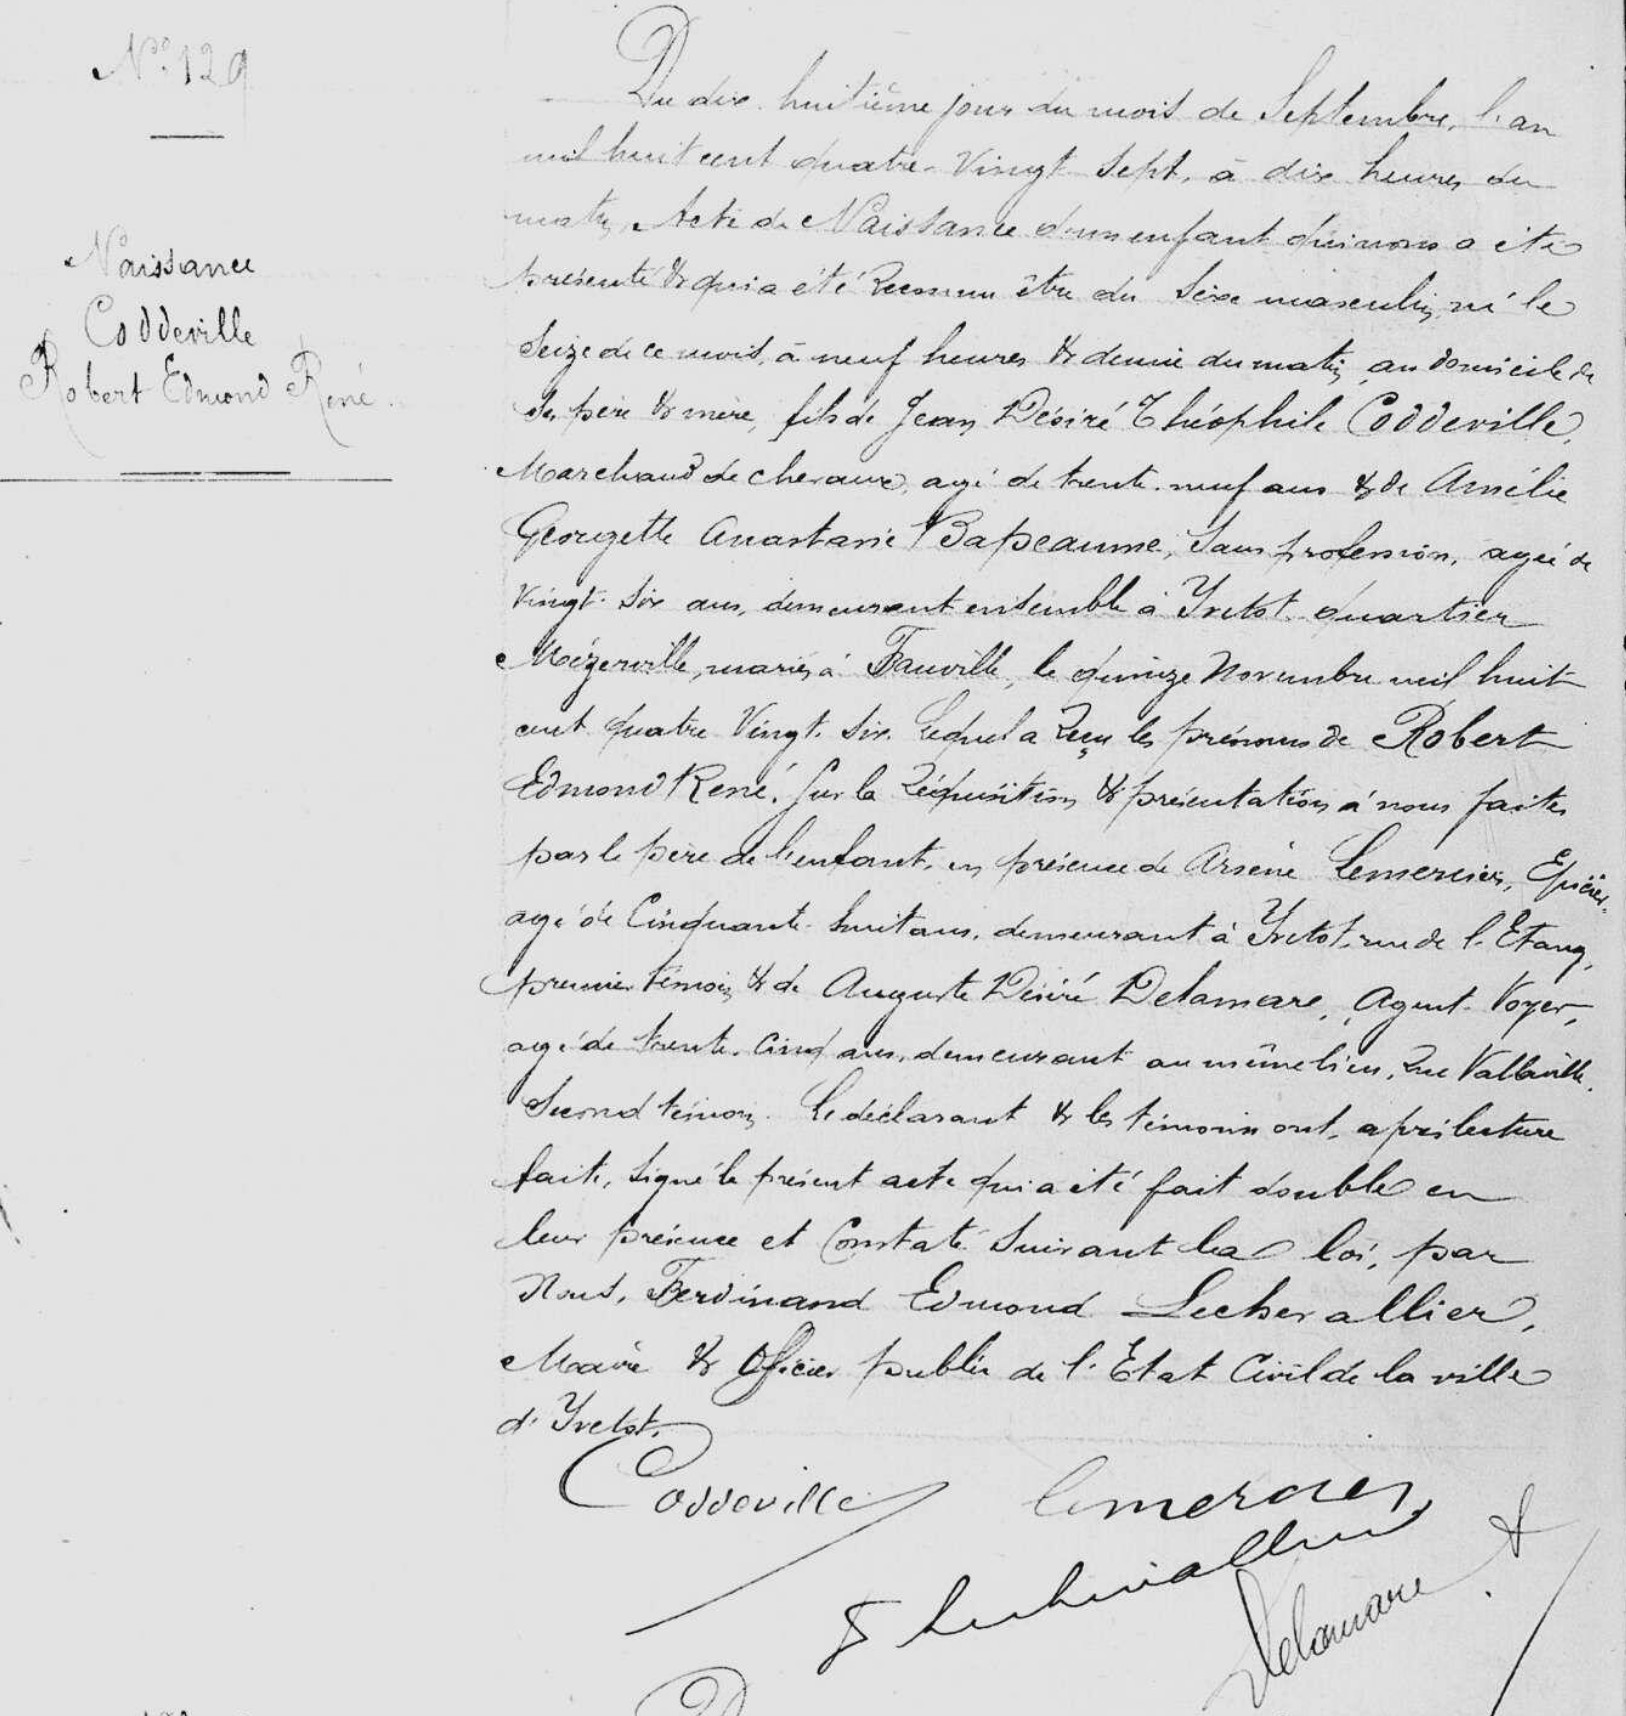 N° 129
Naissance
Coddeville
Robert Edmond René.
Du dix-huitième jour du mois de Septembre, l'an
mil huit cent quatre-Vingt-Sept, à dix heures du
matin, Acte de Naissance d'un enfant qui nous a été
présenté & qui a été Reconnu être du Sexe masculin, né le
Seize de ce mois, à neuf heures & demie du matin, au domicile de
Ses père & mère, fils de Jean Désiré Théophile Coddeville,
Marchand de chevaux, agé de trente-neuf ans & de Amélie
Georgette Anastasie Bapeaume, Sans profession, agée de
Vingt-Six ans, demeurant ensemble à Yvetot, quartier
Mézerville, mariés à Fauville, le quinze Novembre mil huit
cent quatre Vingt-Six. Lequel a Reçu les prénoms de Robert
Edmond René. Sur la Réquisition & présentation à nous faites
par le père de l'enfant, en présence de Arsène Lemercier, Epicier,
agé de Cinquante-huit ans, demeurant à Yvetot, rue de l'Etang,
premier témoin & de Auguste Désiré Delamare, Agent-Voyer,
agé de trente-cinq ans, demeurant au même lieu, Rue
Second témoin. Le déclarant & les témoins ont, après lecture
faite, Signé le présent acte qui a été fait double en
leur présence et Constaté Suivant la loi, par
Nous, Ferdinand Edmond Lechevallier,
Maire & Officier public de l'Etat Civil de la ville
d'Yvetot.
Coddeville Lemercier
F Lechevallier
Delamare